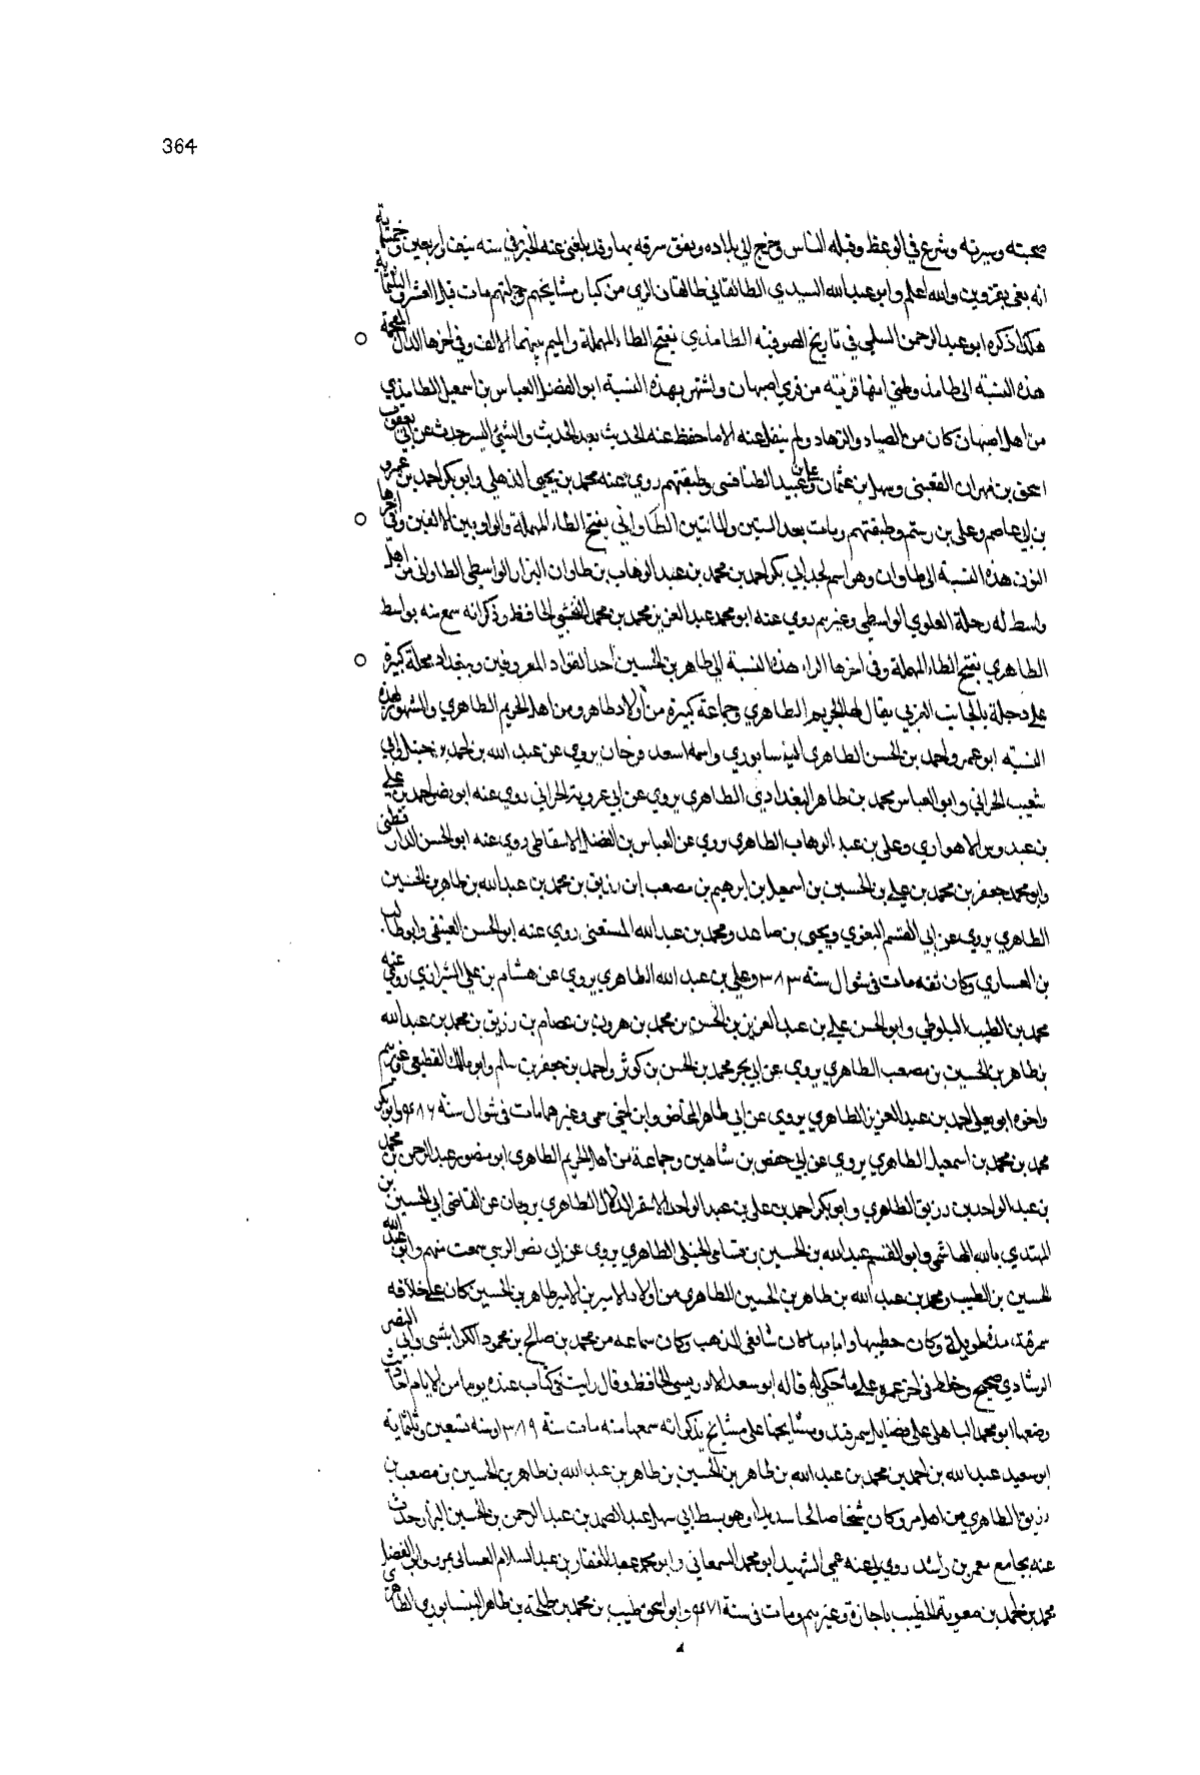 364
صحبته وسيرته وشرع في الوعظ وقبله الناس وخرج الي بلاده ونفق سوقه بها وقد بلغني عنه الخبر في سنه نيف واربعين وخمسمايه
انه بقي بقزوين والله اعلم وابو عبد الله السيدي الطالقاني طالقان الري من كبار مشايخهم وجلتهم مات قبل العشر والثلثمايه
هكذا ذكره ابو عبد الرحمن السلمي في تاريخ الصوفيه الطامذي بفتح الطا المهملة والميم بينهما الالف وفي اخرها الدال المعجمة
هذه النسبة الي طامذ وظني انها قرية من قري اصبهان واشتهر بهذه النسبة ابو الفضل العباس بن اسمعيل الطامذي
من اهل اصبهان كان من العباد والزهاد ولم ينقل عنه الا ما حفظ عنه الحديث بعد الحديث والشئ اليسير حدث عن ابي يعقوب
اسحق بن مهران القعنبي وسهل بن عثمان وعبيد الطنافسي وطبقتهم روي عنه محمد بن يحيي الذهلي وابو بكر احمد بن عمرو
بن ابي عاصم وعلي بن رستم وطبقتهم ومات بعد الستين والمائتين الطاواني بفتح الطاء المهملة والواو بين الالفين وفي اخرها
النون هذه النسبة الي طاوان وهو اسم لجد ابي بكر احمد بن محمد بن عبد الوهاب بن طاوان البزار الواسطي الطاواني من اهل
واسط له رحلة العلوي الواسطي وغيرهم روي عنه ابو محمد عبد العزيز بن محمد بن محمد النخشبي الحافظ وذكر انه سمع منه بواسط
الطاهري بفتح الطاء المهملة وفي اخرها الراء هذه النسبة الي طاهر بن الحسين احد القواد المعروفين وببغداد محلة كبيرة
علي دجلة بالجانب الغربي يقال لها الحريم الطاهري وجماعة كبيرة من اولاد طاهر ومن اهل الحريم الطاهري والمشهور بهذه
النسبه ابو عمرو احمد بن الحسن الطاهري النيسابوري واسمه اسعد فرخان يروي عن عبد الله بن احمد بن حنبل وابي
شعيب الحراني وابو العباس محمد بن طاهر البغدادي الطاهري يروي عن ابي عروبة الحراني روي عنه ابو نصر احمد بن علي
بن عبدوس الاهوازي وعلي بن عبد الوهاب الطاهري يروي عن العباس بن الفضل الاسقاطي روي عنه ابو الحسن الدارقطني
وابو محمد جعفر بن محمد بن علي بن الحسين بن اسمعيل بن ابرهيم بن مصعب بن زريق بن محمد بن عبد الله بن طاهر بن الحسين
الطاهري يروي عن ابي القسم البغوي ويحيي بن صاعد ومحمد بن عبد الله المستعيني روي عنه ابو الحسن العتيقي وابو طالب
بن العساري وكان ثقه مات في شوال سنه ٣٨٣ وعلي بن عبد الله الطاهري يروي عن هشام بن علي الشيرازي روي عنه
محمد بن الطيب البلوطي وابو الحسن علي بن عبد العزيز بن الحسن بن محمد بن هرون بن عصام بن رزيق بن محمد بن عبد الله
بن طاهر بن الحسين بن مصعب الطاهري يروي عن ابي بحر محمد بن الحسن بن كوثر واحمد بن جعفر بن سالم وابو مالك القطيعي وغيرهم
واخوه ابو يعلي احمد بن عبد العزيز الطاهري يروي عن ابي طاهر المخلص وابن اخي ميمي وغيرهما مات في شوال سنة وابو بكر
محمد بن محمد بن اسمعيل الطاهري يروي عن ابي حفص بن شاهين وجماعة من اهل الحريم الطاهري ابو منصور عبد الرحمن بن محمد
بن عبد الواحد بن زريق الطاهري وابو بكر احمد بن علي بن عبد الواحد الاشقر الدلال الطاهري يرويان عن القاضي ابي الحسين بن
المهتدي بالله الهاشمي وابو القسم عبد الله بن الحسين بن الحنبلي الطاهري يروي عن ابي نصر الزينبي سمعت منهم وابو عبد الله
الحسين بن الطيب ومحمد بن عبد الله بن طاهر بن الحسين الطاهري من اولاد الامير بن الامير طاهر بن الحسين كان علي خلافه
سمرقند مدة طويلة وكان خطيبها وامامها كان شافعي المذهب وكان سماعه من محمد بن صالح بن محمود الكرابيسي وابي النضر
الرشادي صحيح وخلط في اخر عمره علي ما حكي لي قاله ابو سعد الادريسي الحافظ وقال رايت في كتاب عنده يوما من الايام احاديث
وضعها ابو محمد الباهلي علي فضايل سمرقند ومشايخنا علي مشايخ يذكر انه سمعها منه مات سنة ٣٨٩ او سنه تسعين وثلثماية
ابو سعيد عبد الله بن احمد بن محمد بن عبد الله بن طاهر بن الحسين بن طاهر بن عبد الله بن طاهر بن الحسين بن مصعب بن
رزيق الطاهري من اهل مرو كان شيخا صالحا سديدا وهو سبط ابي سهل عبد الصمد بن عبد الرحمن بن الحسين البزاز حدث
عنه بجامع معمر بن راشد روي لي عنه عمي الشهيد ابو محمد السمعاني وابو محمد عبد الغفار بن عبد السلام الغساني بمرو وابو الفضل
محمد بن احمد بن معوية الخطيب باجازة وغيرهم ومات في سنة وابو اسحق طيب بن محمد بن طلحة بن طاهر النيسابوري الطاهري